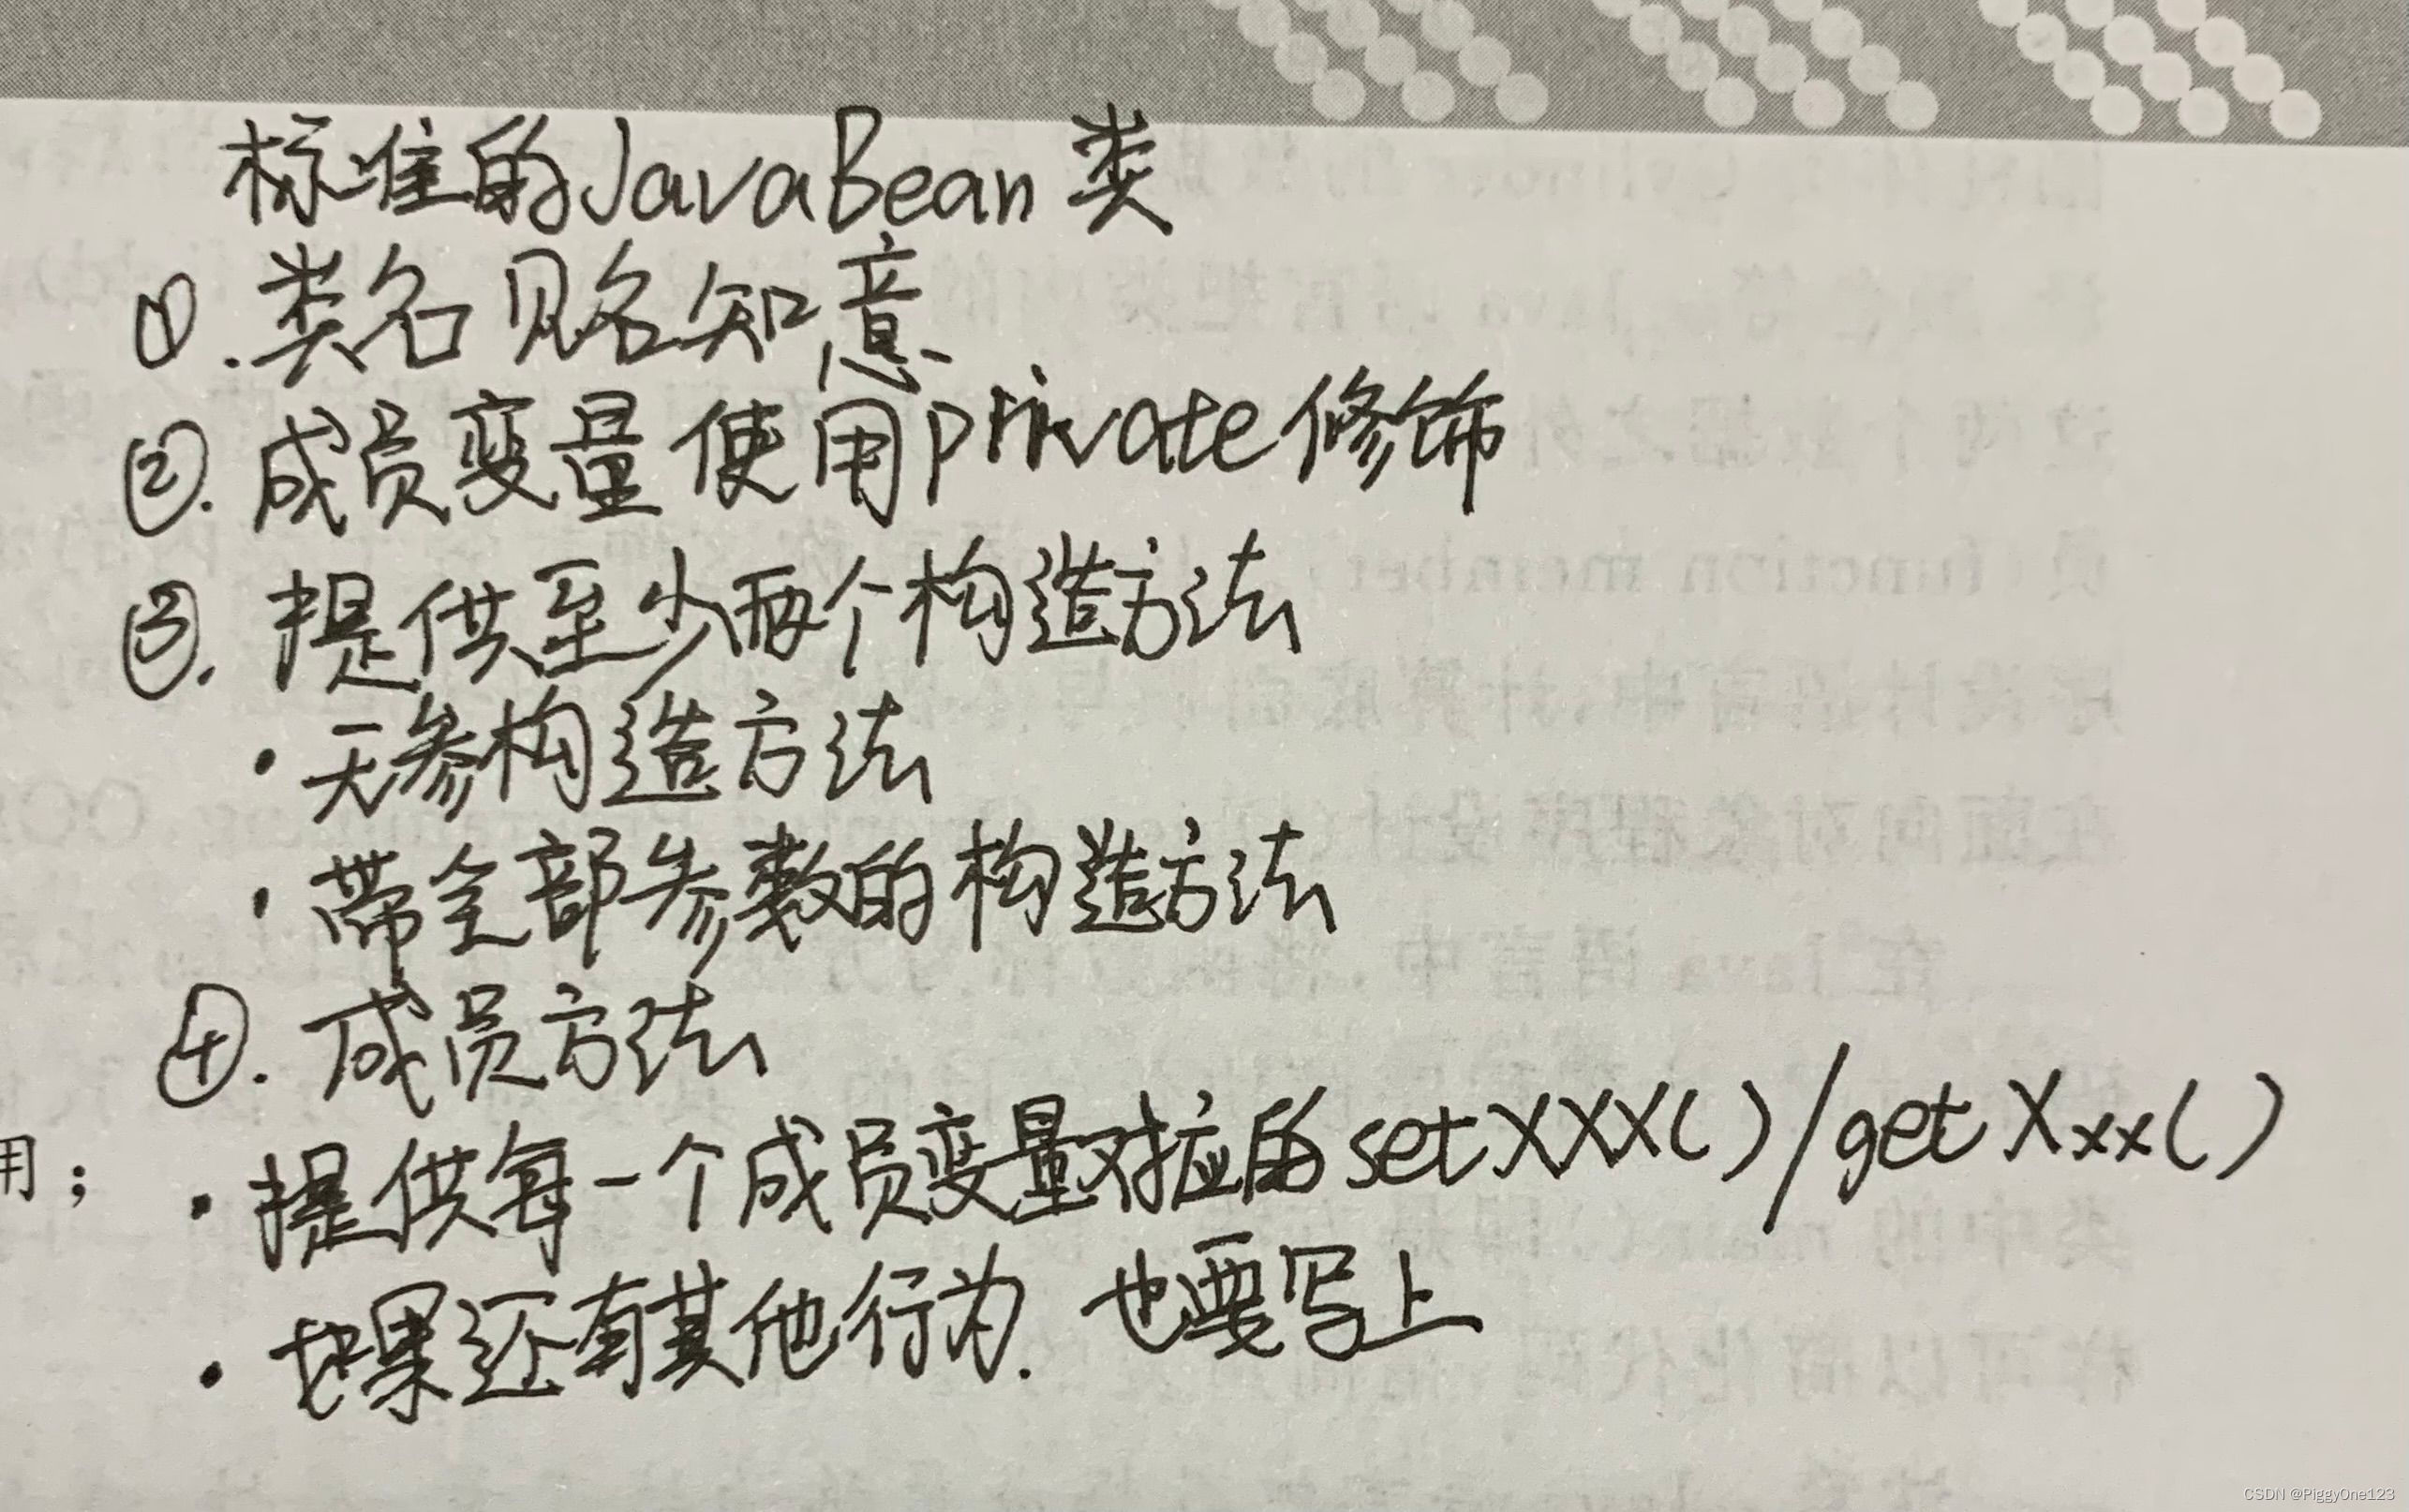 标准的JavaBean类
①.类名见名知意
②.成员变量使用private修饰
③.提供至少两个构造方法
·无参构造方法
·带全部参数的构造方法
④.成员方法
用;
·提供每一个成员变量对应的setXXX()/getXxx()
·如果还有其他行为.也要写上
CSDN @PiggyOne123